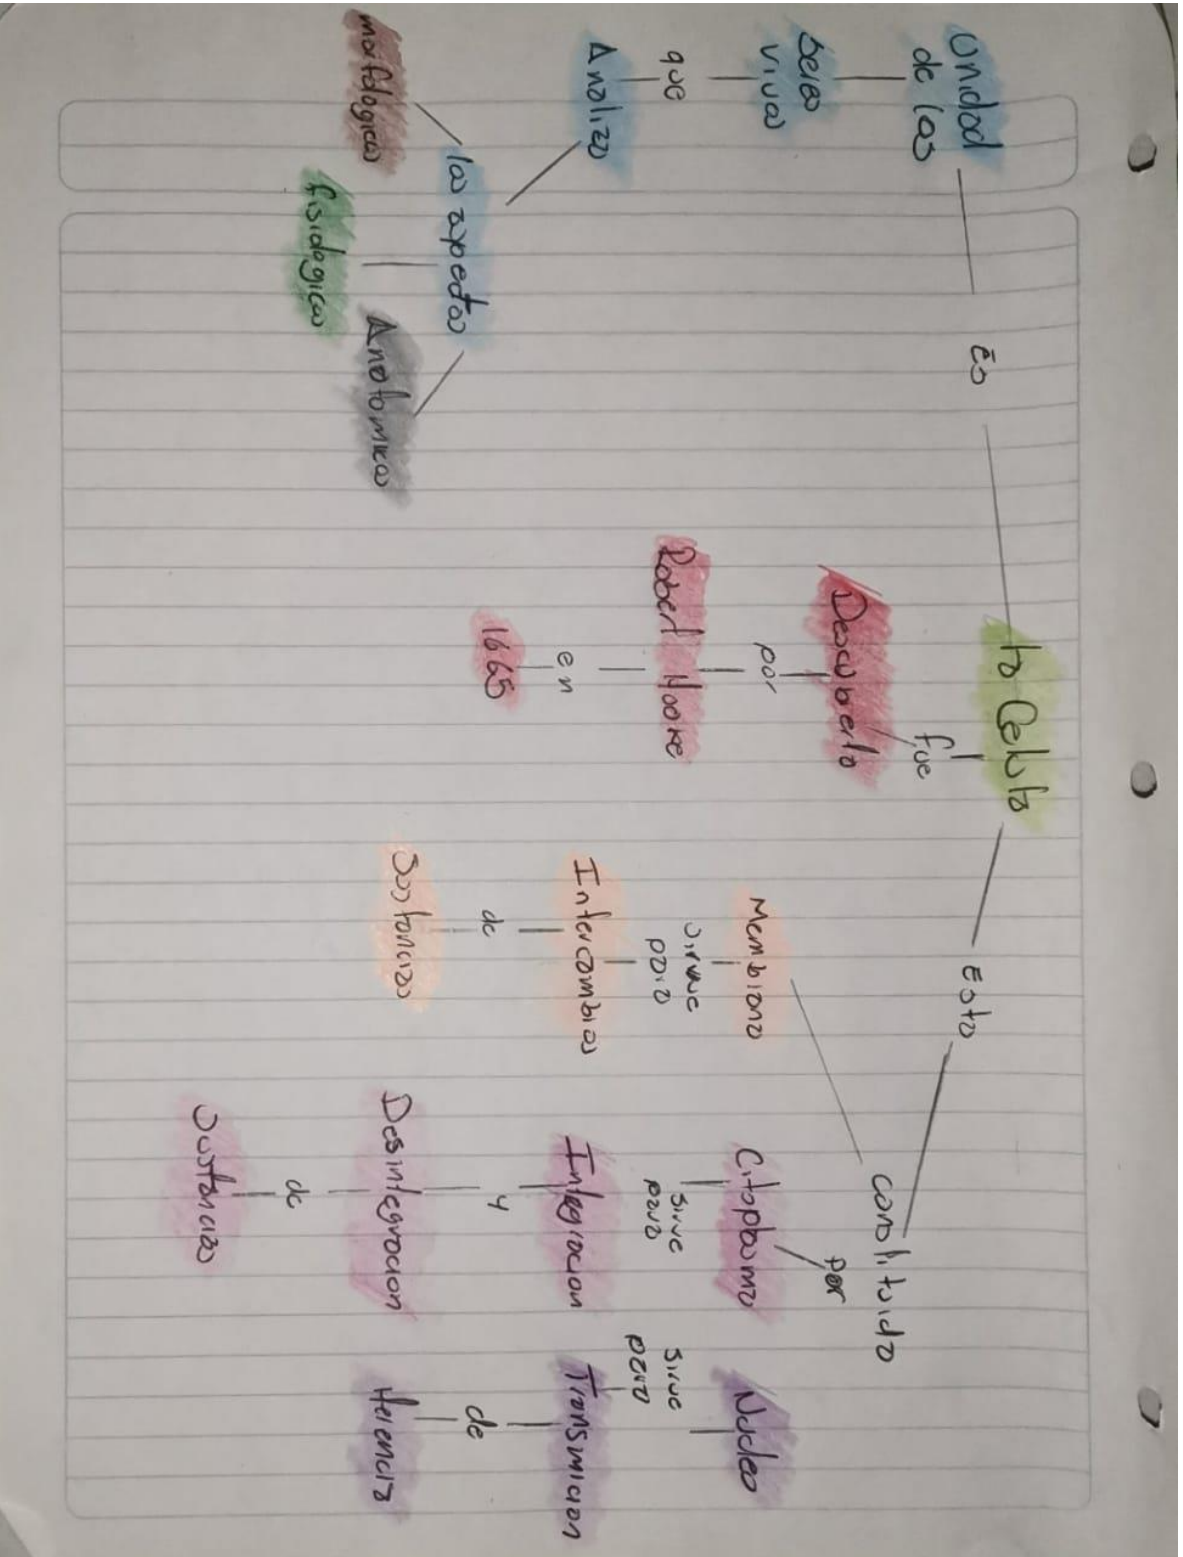 la Celula
Es
Unidad
de los
seres
vivos
que
Analiza
los aspectos
morfologicos
fisiologicos
Anatomicos
fue
Descubierta
por
Robert Hooke
en
1665
Esta
constituida
por
Membrana
sirve
para
Intercambios
de
Sustancias
Citoplasma
sirve
para
Integracion
y
Desintegracion
de
Sustancias
Nucleo
sirve
para
Transmicion
de
Herencia